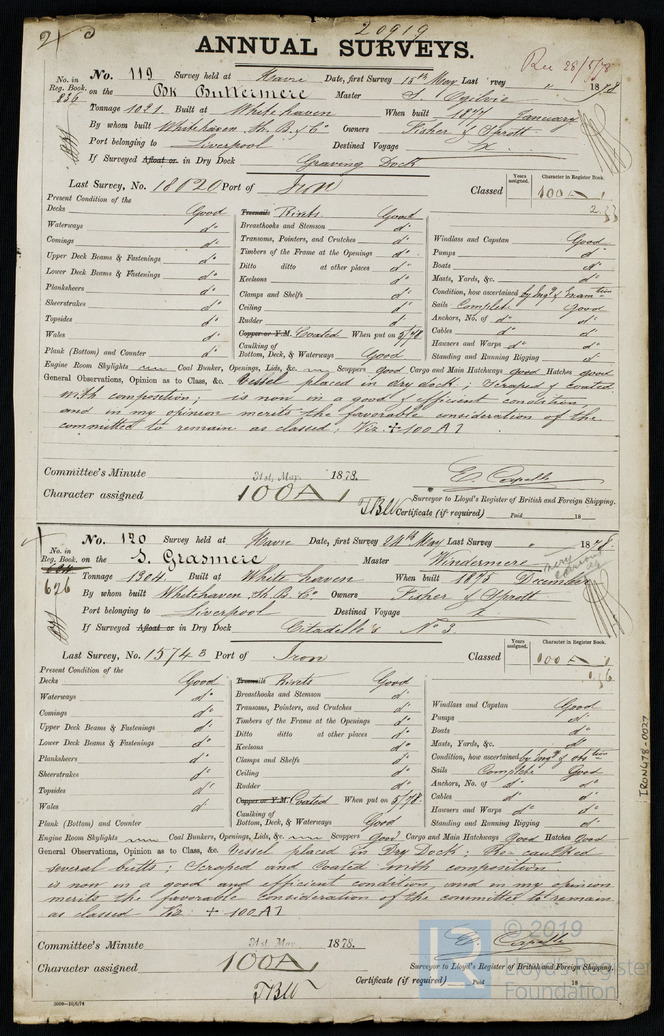 20919
ANNUAL SURVEYS.
Rec 28/5/78
No. in Reg. Book. 836
No. 119 Survey held at Havre Date, first Survey 15th May Last Survey " 1878
on the Bk Buttermere Master S. Ogilvie
Tonnage 1021. Built at Whitehaven When built 1877 January
By whom built Whitehaven Sh. B. & Co Owners Fisher & Sprott
Port belonging to Liverpool Destined Voyage
If Surveyed Afloat or in Dry Dock Graving Dock
Last Survey, No. 18020 Port of Iron Classed
Years assigned. Character in Register Book.
100 A 1
Present Condition of the
Decks Good
Waterways do
Comings do
Upper Deck Beams & Fastenings do
Lower Deck Beams & Fastenings do
Planksheers do
Sheerstrakes do
Topsides do
Wales do
Plank (Bottom) and Counter do
Treenails Rivets Good
Breasthooks and Stemson do
Transoms, Pointers, and Crutches do
Timbers of the Frame at the Openings do
Ditto ditto at other places do
Keelsons do
Clamps and Shelfs do
Ceiling do
Rudder do
Copper or Y.M. Coated When put on 5/78
Caulking of
Bottom, Deck, & Waterways Good
Windlass and Capstan Good
Pumps do
Boats do
Masts, Yards, &c. do
Condition, how ascertained by Insp & Examtion
Sails Complete Good
Anchors, No. of do do
Cables do do
Hawsers and Warps do do
Standing and Running Rigging do
Engine Room Skylights Coal Bunker, Openings, Lids, &c. Scuppers good Cargo and Main Hatchways good Hatches good
General Observations, Opinion as to Class, &c. Vessel placed in dry dock; Scraped & coated
with composition; is now in a good & efficient condition
and in my opinion merits the favorable consideration of the
committee to remain as classed; Viz + 100 A 1
Committee's Minute 31st, May 1878.
Character assigned 100 A 1
E. Capelle
Surveyor to Lloyd's Register of British and Foreign Shipping.
Certificate (if required) Paid 18
No. in Reg. Book.
626
No. 120 Survey held at Havre Date, first Survey 24th May Last Survey " 1878
on the S. Grasmere Master Windermere
Tonnage 1304. Built at White haven When built 1875 December
By whom built Whitehaven Sh. B. Co Owners Fisher & Sprott
Port belonging to Liverpool Destined Voyage
If Surveyed Afloat or in Dry Dock Citadelle's No 3.
Last Survey, No. 15743 Port of Iron Classed
Years assigned. Character in Register Book.
100 A 1
Present Condition of the
Decks Good
Waterways do
Comings do
Upper Deck Beams & Fastenings do
Lower Deck Beams & Fastenings do
Planksheers do
Sheerstrakes do
Topsides do
Wales do
Plank (Bottom) and Counter
Treenails Rivets Good
Breasthooks and Stemson do
Transoms, Pointers, and Crutches do
Timbers of the Frame at the Openings do
Ditto ditto at other places do
Keelsons do
Clamps and Shelfs do
Ceiling do
Rudder do
Copper or Y.M. Coated When put on 5/78.
Caulking of
Bottom, Deck, & Waterways Good
Windlass and Capstan Good
Pumps do
Boats do
Masts, Yards, &c. do
Condition, how ascertained by Insp &
Sails Complete Good
Anchors, No. of do do
Cables do do
Hawsers and Warps do do
Standing and Running Rigging do
Engine Room Skylights Coal Bunkers, Openings, Lids, &c. Scuppers Good Cargo and Main Hatchways Good Hatches Good
General Observations, Opinion as to Class, &c. Vessel placed in Dry Dock; Re-caulked
several butts; Scraped and Coated with composition.
is now in a good and efficient condition, and in my opinion
merits the favorable consideration of the committee to remain
as classed Viz + 100 A 1
Committee's Minute 31st, May 1878.
Character assigned 100 A 1
E. Capelle
Surveyor to Lloyd's Register of British and Foreign Shipping.
Certificate (if required) Paid 18
IRON478-0027
© 2019
Lloyd's Register
Foundation